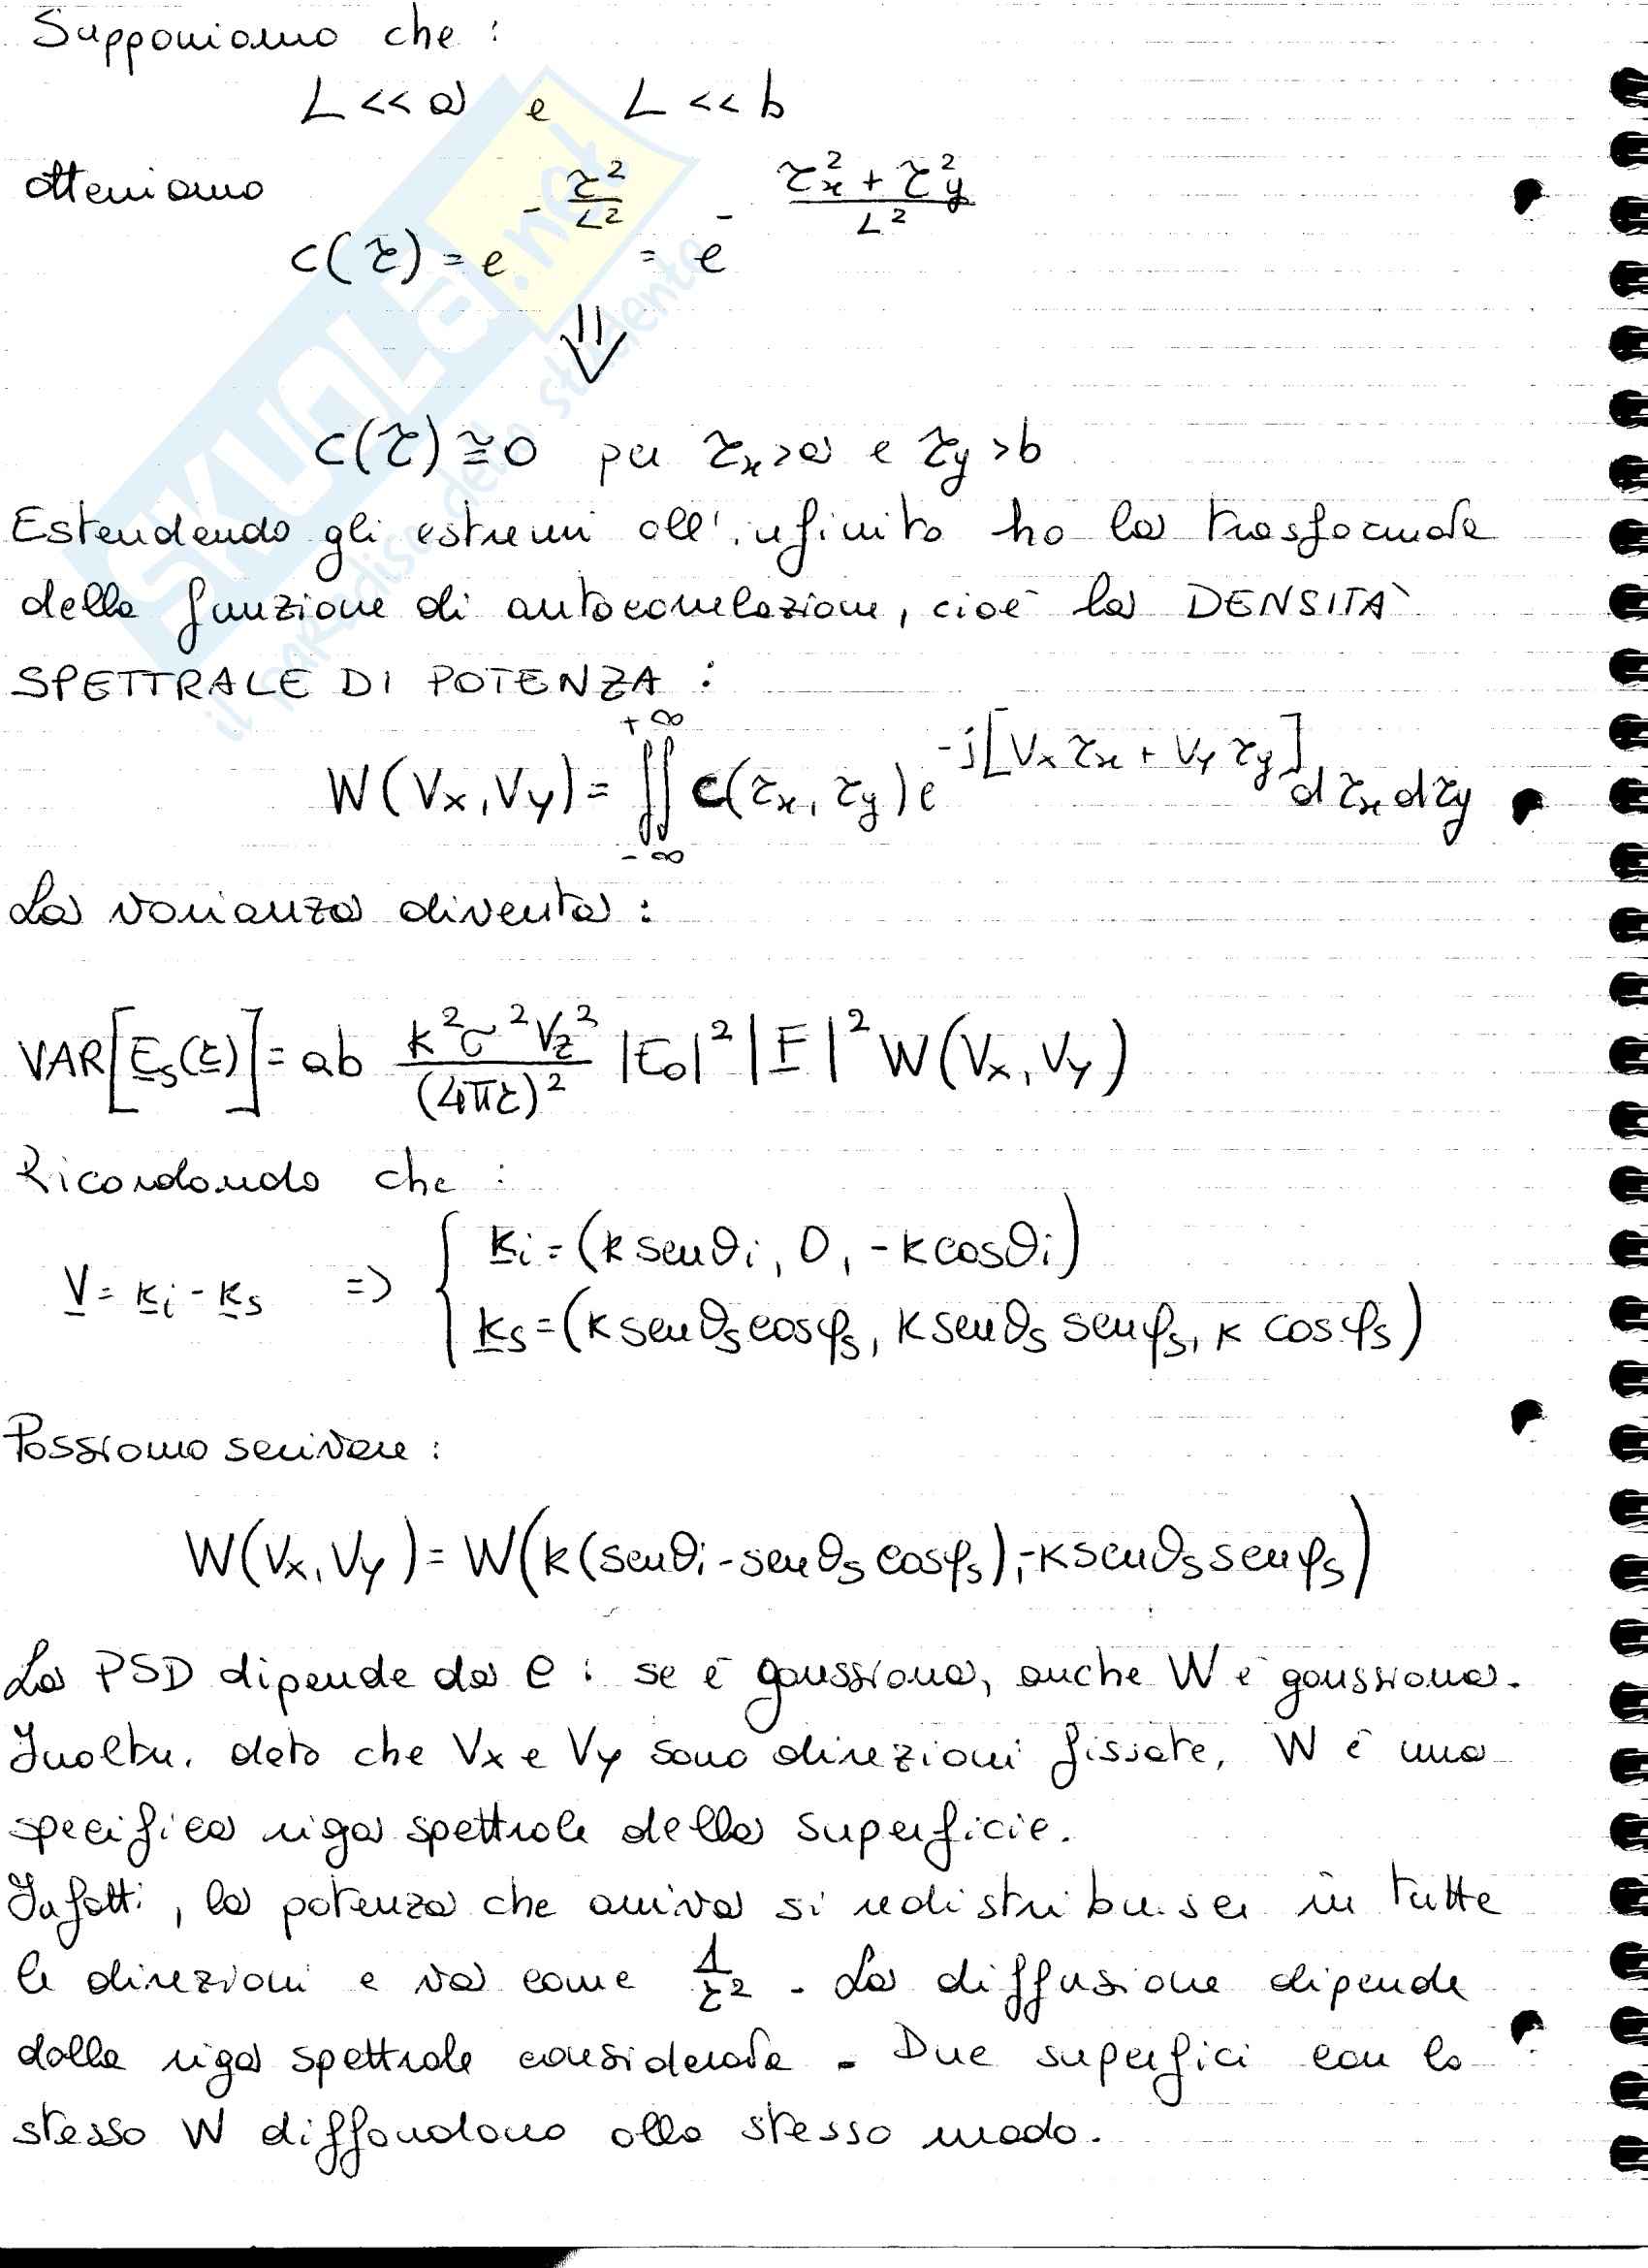 Supponiamo che :
L << a e L << b
otteniamo
c(τ) = e^{-τ²/L²} = e^{-(τx² + τy²)/L²}
⇓
c(τ) ≅ 0 per τx > a e τy > b
Estendendo gli estremi all'infinito ho la trasformata
della funzione di autocorrelazione, cioè la DENSITÀ
SPETTRALE DI POTENZA :
W(Vx, Vy) = ∬_{-∞}^{+∞} c(τx, τy) e^{-j[Vx τx + Vy τy]} dτx dτy
La varianza diventa :
VAR[E̲s(r̲)] = ab (k²σ²Vz²)/(4πr)² |E0|² |F̲|² W(Vx, Vy)
Ricordando che :
V̲ = k̲i - k̲s => { k̲i = (k senθi, 0, -k cosθi)
k̲s = (k senθs cosφs, k senθs senφs, k cosφs)
Possiamo scrivere :
W(Vx, Vy) = W(k(senθi - senθs cosφs), -k senθs senφs)
La PSD dipende da C : se è gaussiana, anche W è gaussiana.
Inoltre, dato che Vx e Vy sono direzioni fissate, W è una
specifica riga spettrale della superficie.
Infatti, la potenza che arriva si redistribuisce in tutte
le direzioni e va come 1/r² . La diffusione dipende
dalla riga spettrale considerata . Due superfici con lo
stesso W diffondono allo stesso modo.
SKUOLA.net
il paradiso dello studente